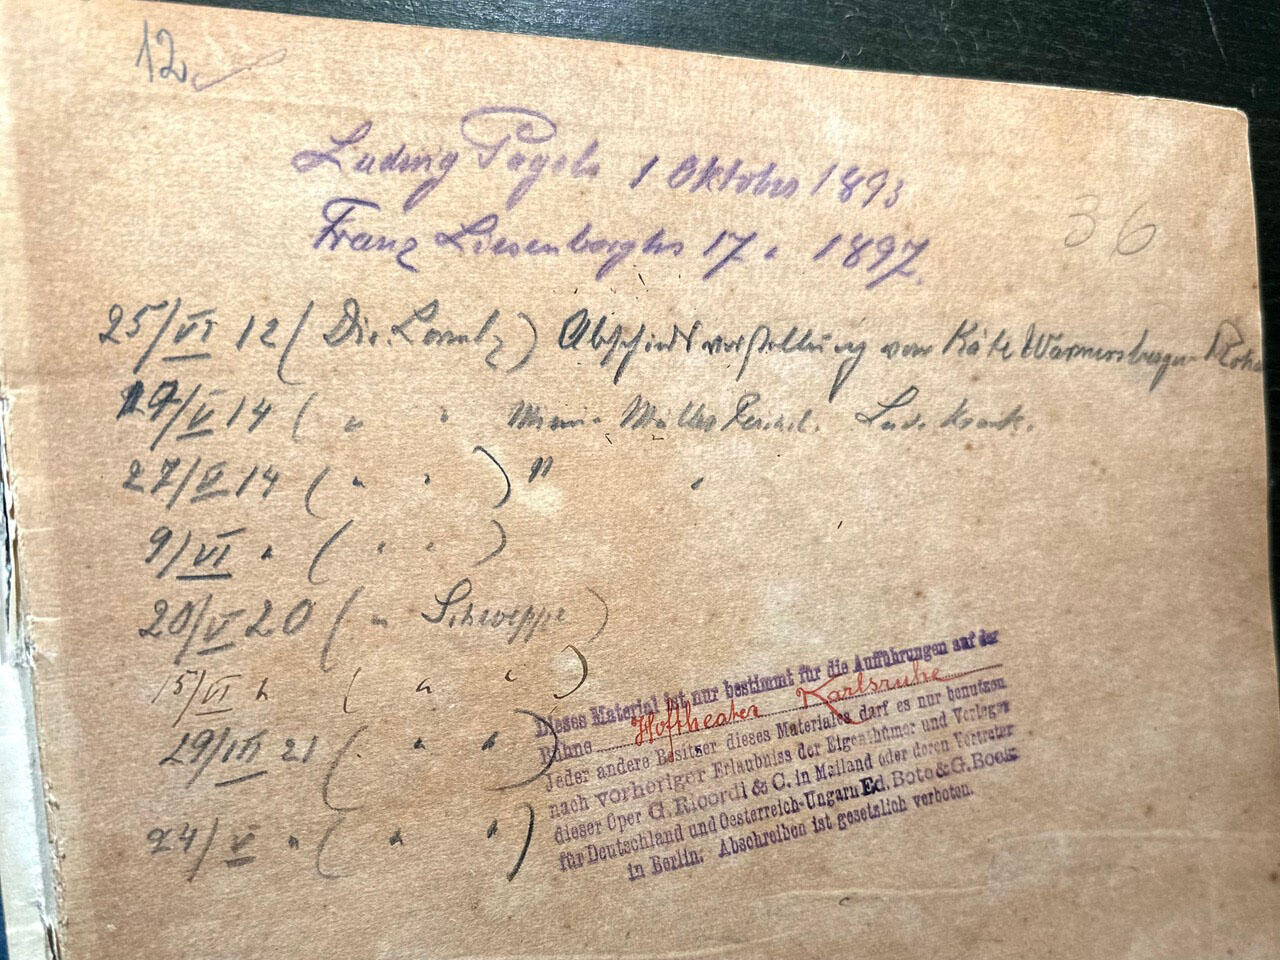 12
Ludwig Pagels 1 Oktober 1893
Franz Liesenborghs 17. 1897.
36
25/VI 12 (Dir. Lorentz) Abschiedsvorstellung von Käte Warmersperger
/V 14 ( " "
27/V 14 ( " " ) " "
9/VI " ( " " )
20/V 20 ( " Schweppe )
15/VI " ( " " )
29/III 21 ( " " )
24/V " ( " " )
Dieses Material ist nur bestimmt für die Aufführungen auf der
Bühne Hoftheater Karlsruhe
Jeder andere Besitzer dieses Materiales darf es nur benutzen
nach vorheriger Erlaubniss der Eigenthümer und Verleger
dieser Oper G. Ricordi & C. in Mailand oder deren Vertreter
für Deutschland und Oesterreich-Ungarn Ed. Bote & G. Bock
in Berlin. Abschreiben ist gesetzlich verboten.